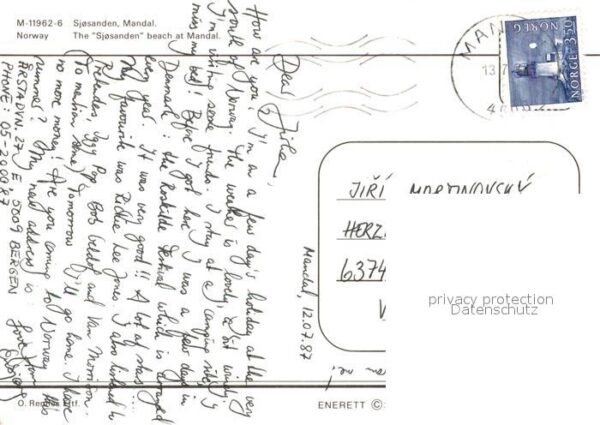 M-11962-6 Sjøsanden, Mandal.
Norway The "Sjøsanden" beach at Mandal.
Dear
How are you? I'm on a few day's holiday at the very
south of Norway. The weather is lovely, a bit windy.
I'm visiting some friends. I stay at a camping site; I
miss my bed! Before I got here I was a few days in
Denmark: the Roskilde Festival which is arranged
every year. It was very good!! A lot of stars:
My favourite was Rickie Lee Jones. I also listened to
Pretenders, Iggy Pop, Bob Geldof and Van Morrison
(to mention some). Tomorrow I'll go home. I have
no more money! Are you coming to Norway this
summer? My new address is:
ÅRSTADVN. 27, E, 5009 BERGEN
PHONE: 05-200087
Love from
Mandal, 12.07.87
MAN
13.7
NORGE 3,50
NOREG
JIŘÍ
HERZ
6374
privacy protection
Datenschutz
ENERETT ©